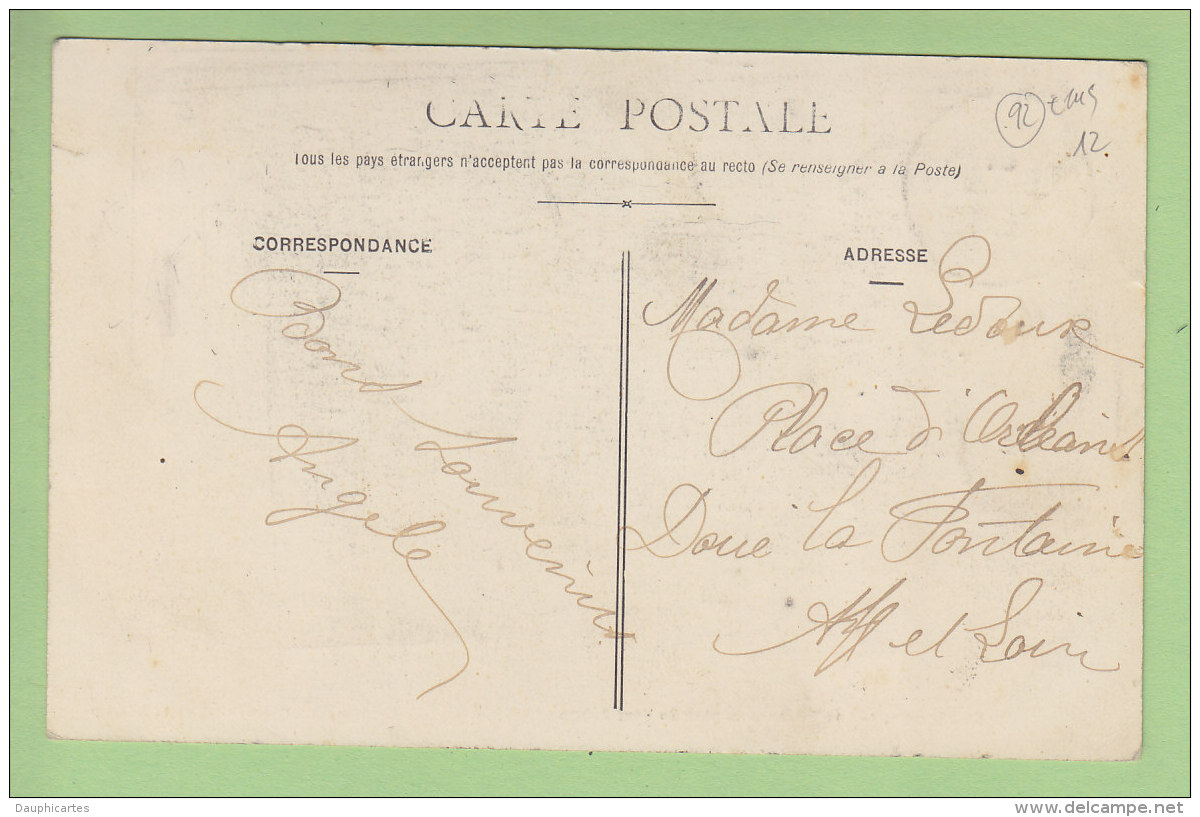 CARTE POSTALE
Tous les pays étrangers n'acceptent pas la correspondance au recto (Se renseigner à la Poste)
92
12
CORRESPONDANCE
Bons Souvenirs
Angele
ADRESSE
Madame Ledoux
Place d'Orléans
Doue la Fontaine
et Loire
Dauphicartes
www.delcampe.net